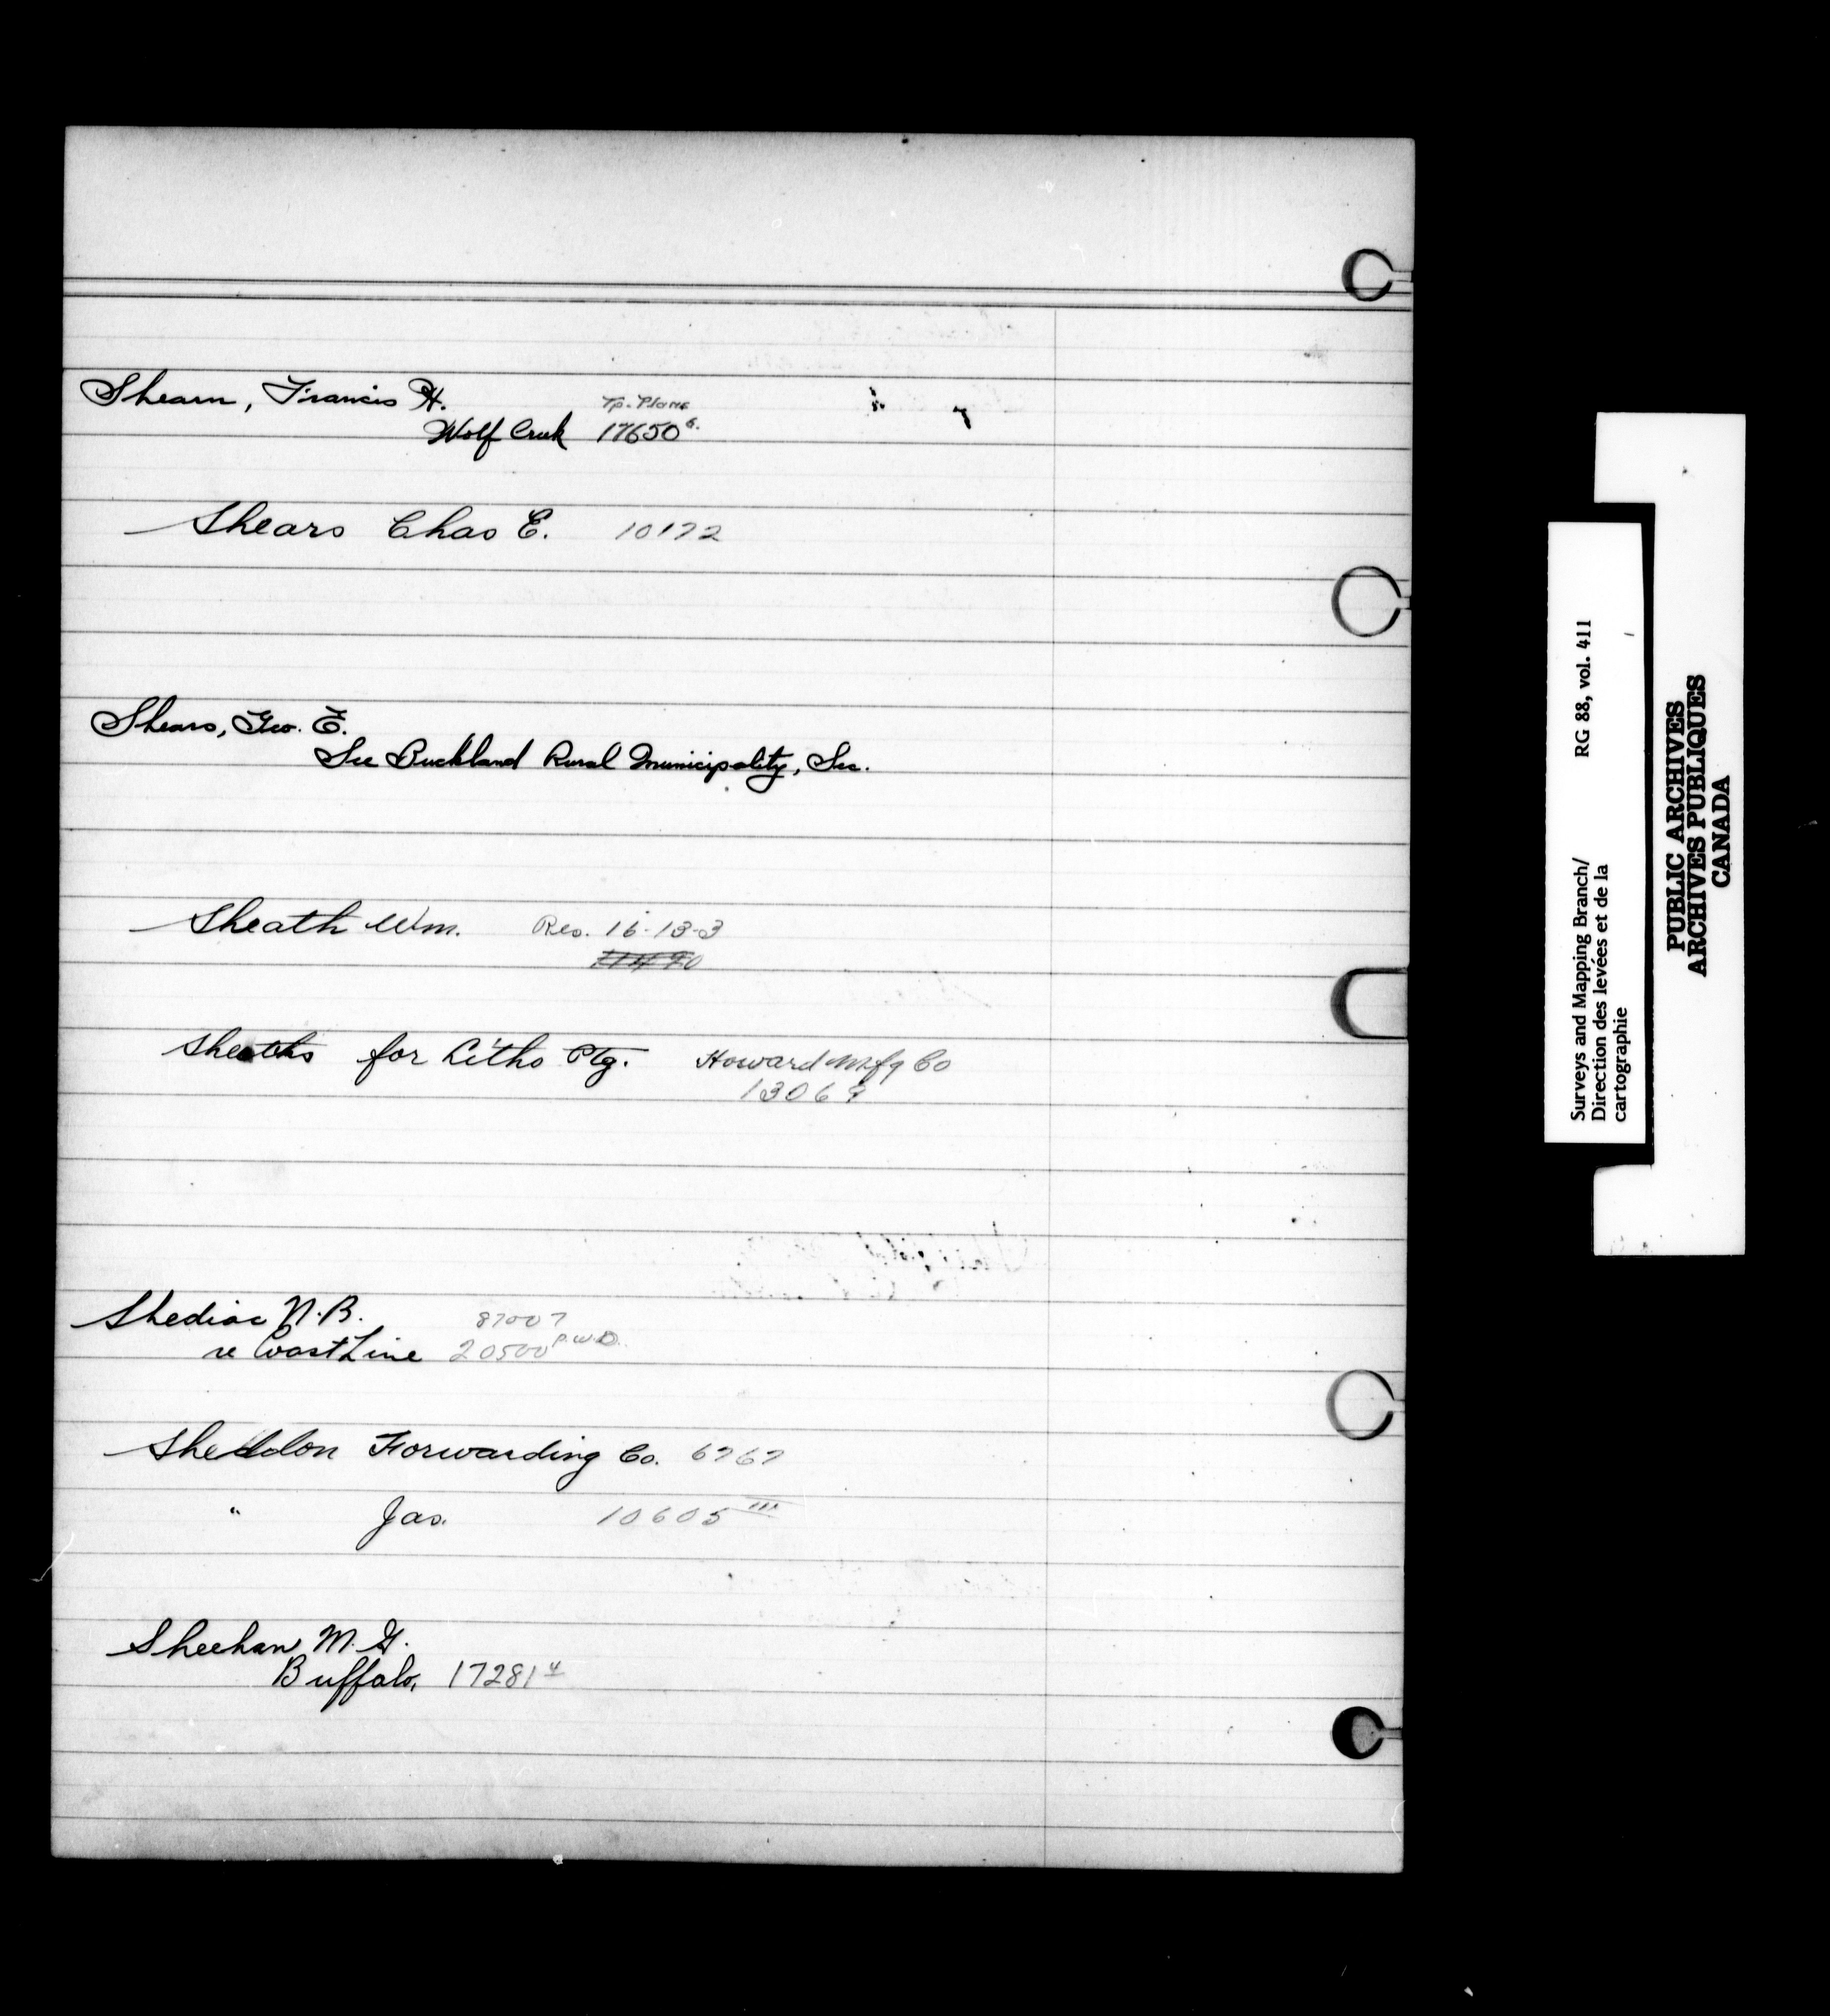 Shearn, Francis H. Tp. Plans
Wolf Creek 17650 6.
Shears Chas E. 10172
Shears, Geo. E.
See Buckland Rural Municipality, Sec.
Sheath Wm. Res. 16-13-3
Sheaths for Litho Ptg. Howard Mfg Co
13069
Shediac N.B. 87007
re Coast Line 20500 P.W.D.
Sheddon Forwarding Co. 6767
" Jas. 10605 III
Sheehan M. G.
Buffalo, 17281 4
Surveys and Mapping Branch/ RG 88, vol. 411
Direction des levées et de la
cartographie
PUBLIC ARCHIVES
ARCHIVES PUBLIQUES
CANADA